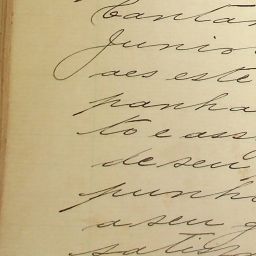 Cantan
Junior
aes este
panha
to e ass
de seu
punho
a seu
satisf